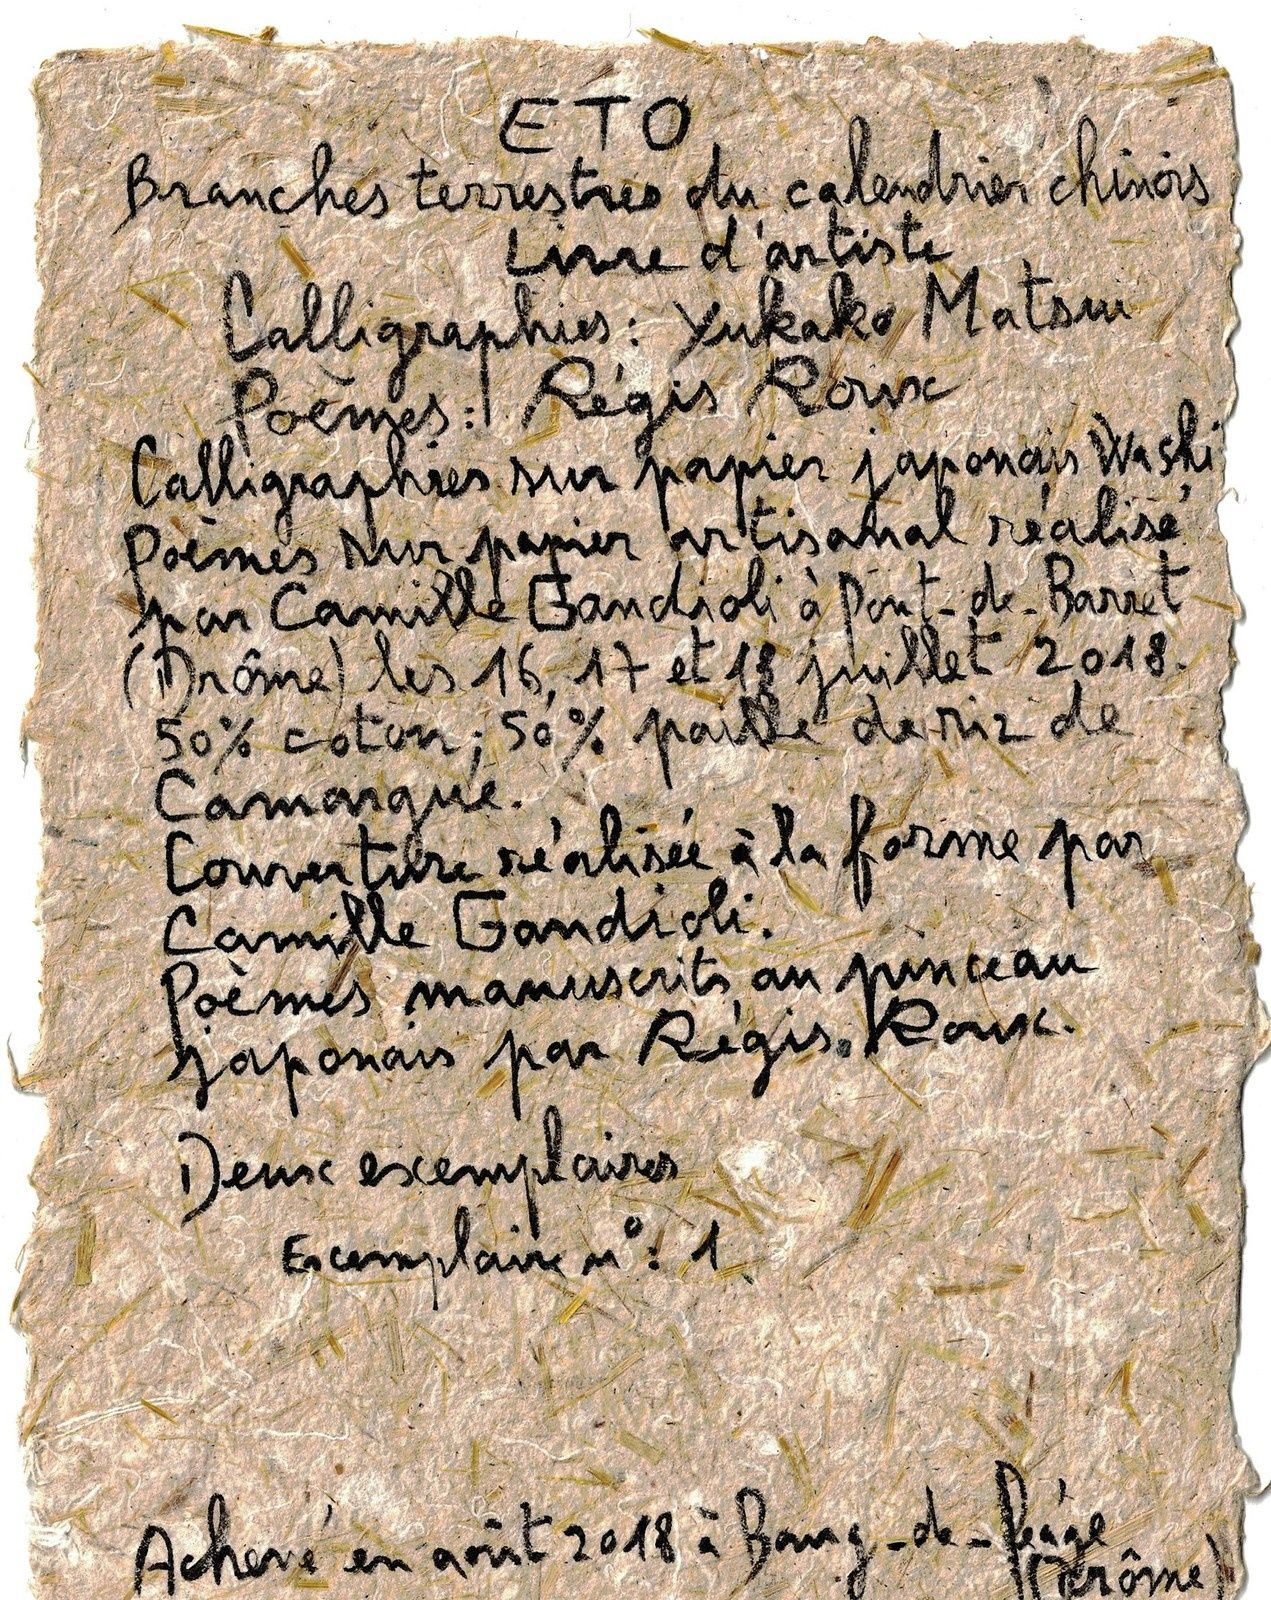 ETO
Branches terrestres du calendrier chinois
Livre d'artiste
Calligraphies: Yukako Matsui
Poèmes: Régis Roux
Calligraphies sur papier japonais Washi
Poèmes sur papier artisanal réalisé
par Camille Gandioli à Pont-de-Barret
(Drôme) les 16, 17 et 18 juillet 2018.
50% coton; 50% paille de riz de
Camargue.
Couverture réalisée à la forme par
Camille Gandioli.
Poèmes manuscrits au pinceau
japonais par Régis Roux.
Deux exemplaires
Exemplaire n°: 1
Achevé en août 2018 à Bourg-de-Péage
(Drôme)